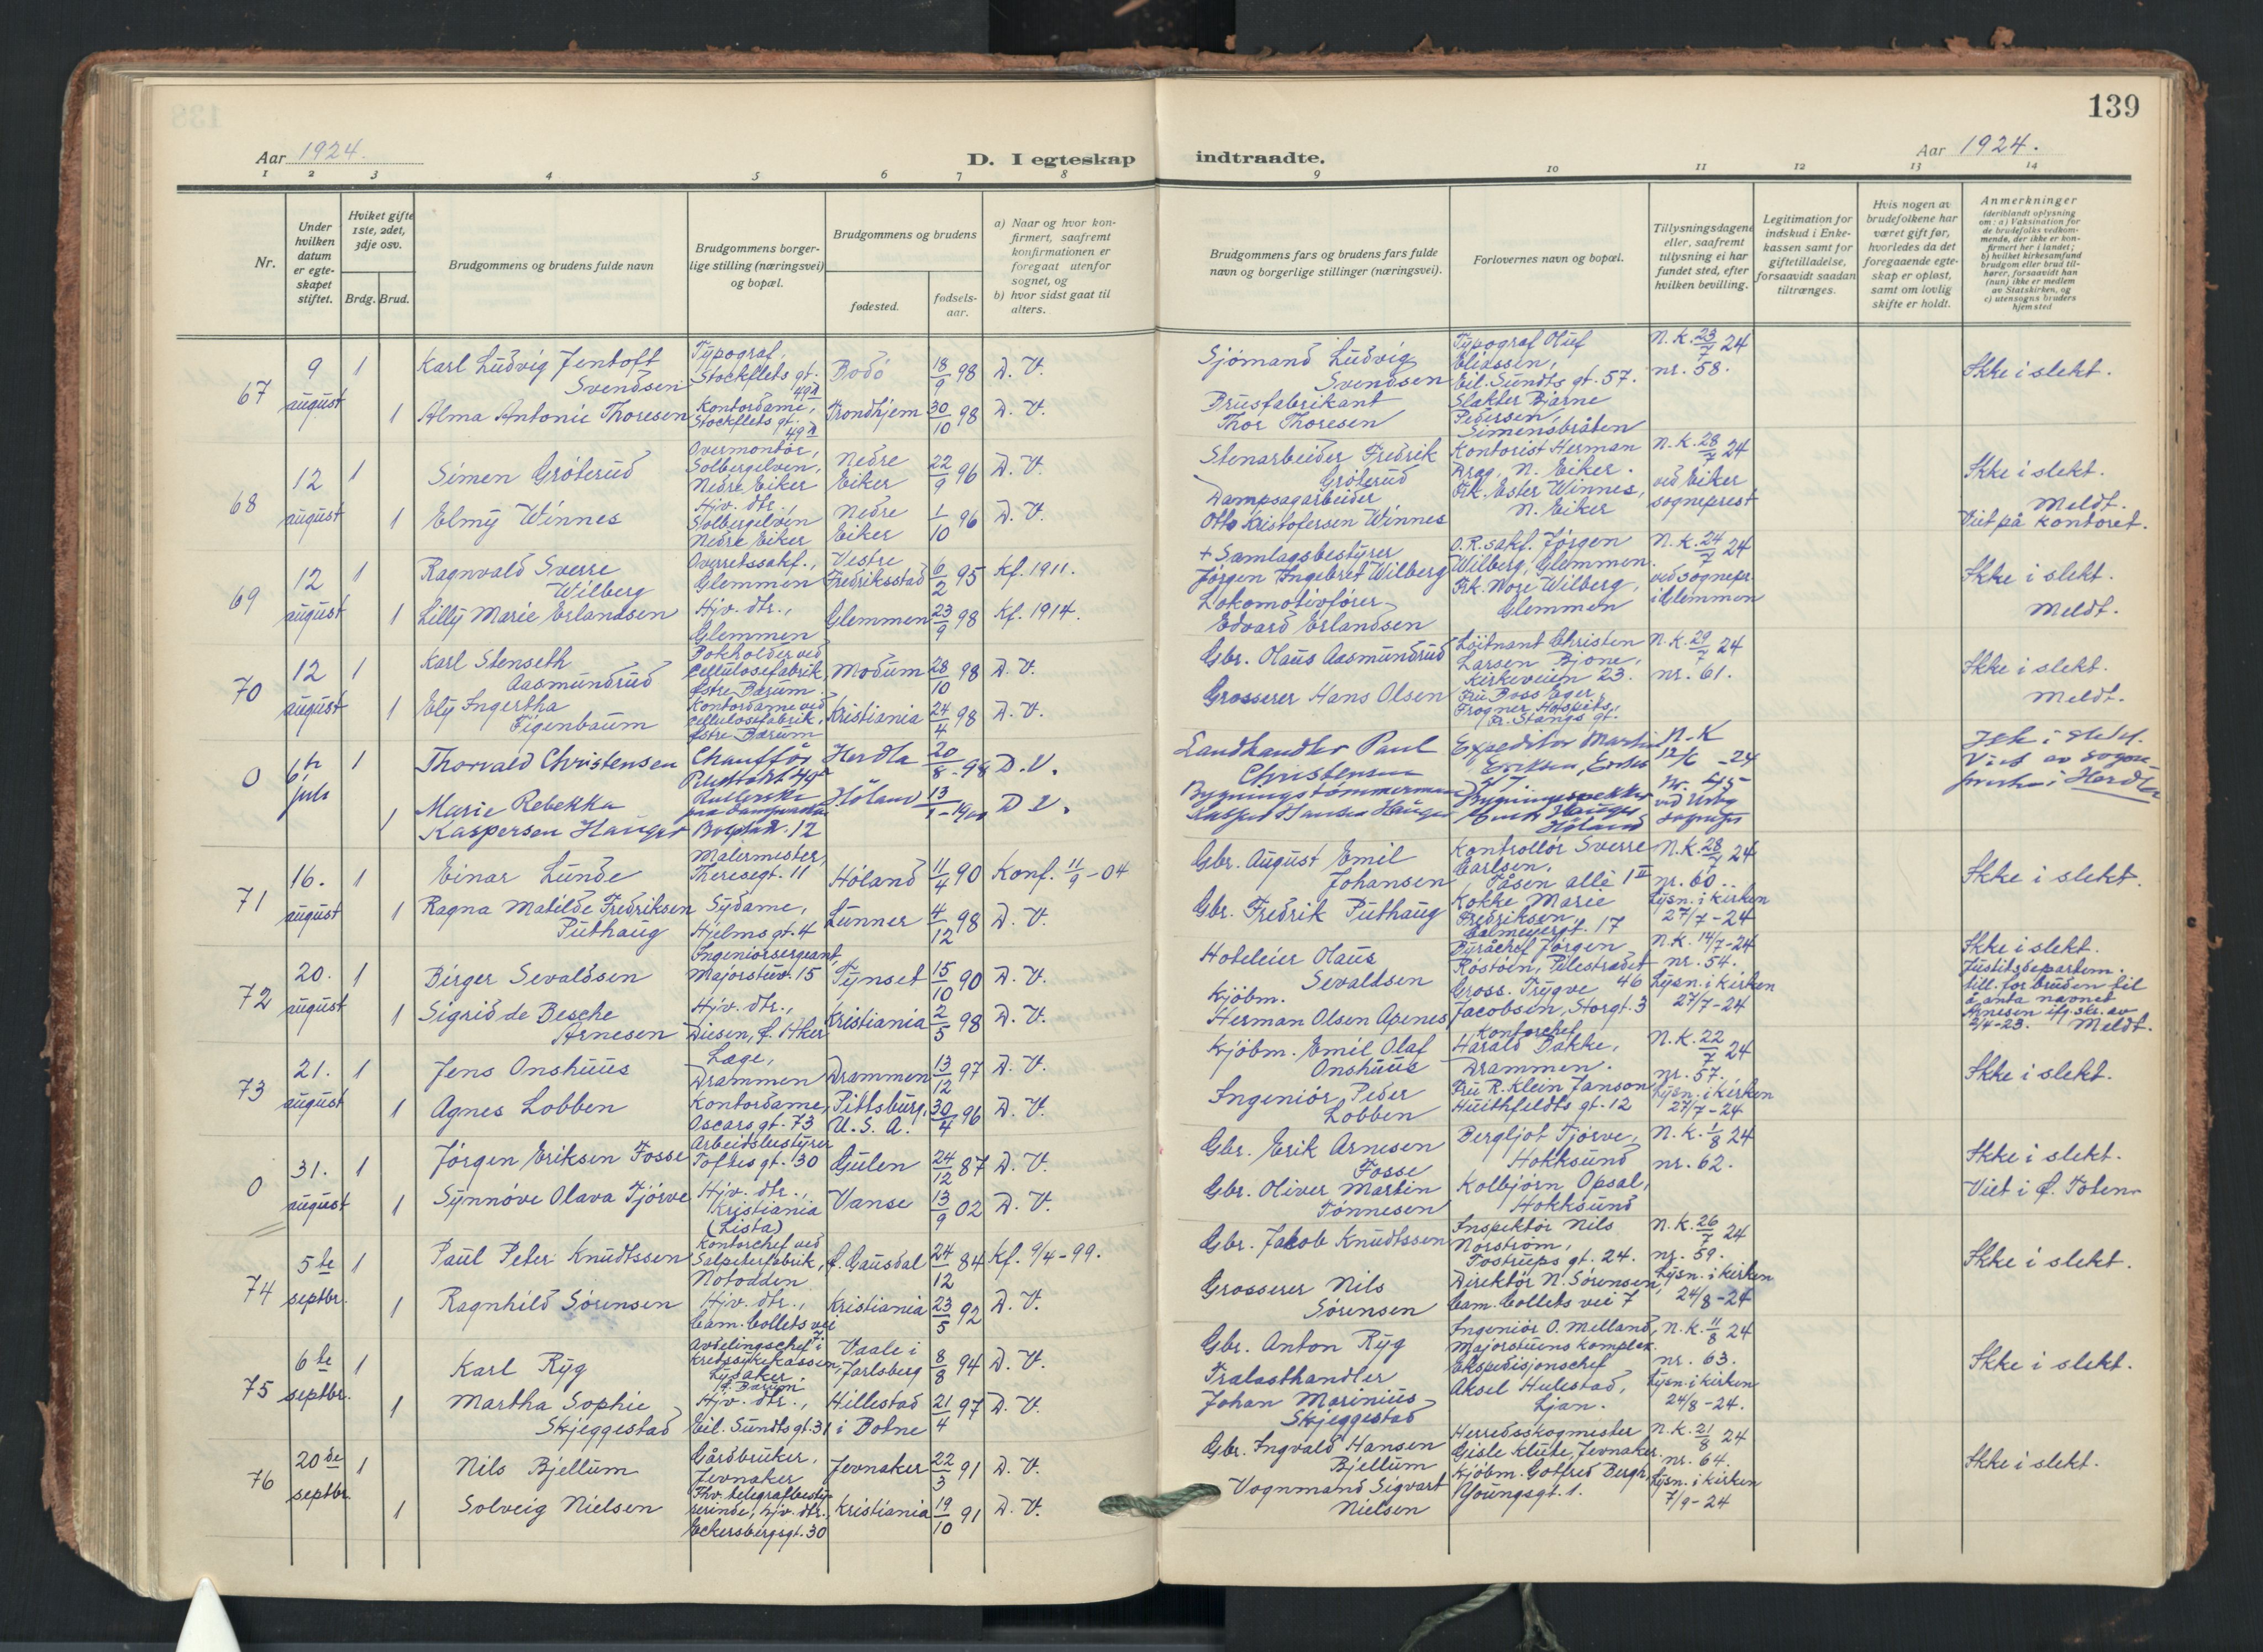 139
Aar 1924.
D. I egteskap indtraadte.
Aar 1924.
1 2 3 4 5 6 7 8 9 10 11 12 13 14
Nr.
Under hvilken datum er egteskapet stiftet.
Hviket gifte 1ste, 2det, 3dje osv.
Brdg. Brud.
Brudgommens og brudens fulde navn
Brudgommens borgerlige stilling (næringsvei) og bopæl.
Brudgommens og brudens
fødested.
fødselsaar.
a) Naar og hvor konfirmert, saafremt konfirmationen er foregaat utenfor sognet, og
b) hvor sidst gaat til alters.
Brudgommens fars og brudens fars fulde navn og borgerlige stillinger (næringsvei).
Forlovernes navn og bopæl.
Tillysningsdagene eller, saafremt tillysning ei har fundet sted, efter hvilken bevilling.
Legitimation for indskud i Enkekassen samt for giftetilladelse, forsaavidt saadan tiltrænges.
Hvis nogen av brudefolkene har været gift før, hvorledes da det foregaaende egteskap er opløst, samt om lovlig skifte er holdt.
Anmerkninger
(deriblandt oplysning om: a) Vaksination for de brudefolks vedkommende, der ikke er konfirmert her i landet; b) hvilket kirkesamfund brudgom eller brud tilhører, forsaavidt han (hun) ikke er medlem av Statskirken, og c) utensogns bruders hjemsted
67
9 august
1
Karl Ludvig Jentoft Svendsen
Typograf, Stockflets gt. 49 A
Bodö
18/9 98
D. V.
Sjömand Ludvig Svendsen
Typograf Oluf Eliassen, Eil. Sundts gt. 57.
N.K. 23/7 24 nr. 58.
Ikke i slekt.
1
Alma Antonie Thoresen
Kontordame, Stockflets gt. 49 A
Trondhjem
30/10 98
D. V.
Brusfabrikant Thor Thoresen
Slakter Bjarne Pedersen, Simensbråten
68
12 august
1
Simen Gröterud
Overmontör, Solbergelven, Nedre Eiker
Nedre Eiker
22/9 96
D. V.
Stenarbeider Fredrik Gröterud
Kontorist Herman Drag, N. Eiker.
N.K. 28/7 24 ved Eiker sogneprest
Ikke i slekt.
Meldt.
Viet på kontoret.
1
Elmy Winnes
Hjv. dtr., Solbergelven Nedre Eiker
Nedre Eiker
1/10 96
D. V.
Dampsagarbeider Otto Kristofersen Winnes
Frk. Ester Winnes, N. Eiker
69
12 august
1
Ragnvald Sverre Wilberg
Overretssakf., Glemmen
Vestre Fredriksstad
6/2 95
Kf. 1911.
+ Samlagsbestyrer Jörgen Ingebret Wilberg
O.R.sakf. Jörgen Wilberg, Glemmen.
N.K. 24/7 24 ved sognepr. i Glemmen
Ikke i slekt.
Meldt.
1
Lilly Marie Erlandsen
Hjv. dtr., Glemmen
Glemmen
23/9 98
Kf. 1914.
Lokomotivförer Edvard Erlandsen
Frk. Wilberg, Glemmen
70
12 august
1
Karl Stenseth Aasmundrud
Bokholder ved Cellulosefabrik, Östre Bærum.
Modum
28/10 98
D. V.
Gbr. Olaus Aasmundrud
Löitnant Christen Larsen Bjone, Kirkeveien 23.
N.K. 29/7 24 nr. 61.
Ikke i slekt.
Meldt.
1
Ely Ingertha Figenbaum
Kontordame ved cellulosefabrik, Östre Bærum
Kristiania
24/4 98
D. V.
Grosserer Hans Olsen
Fru Boss Eger, Frogner Hospits, Fr. Stangs gt.
0
6te juli
1
Thorvald Christensen
Chaufför
Herdla
20/8 - 98
D. V.
Landhandler Paul Christensen
Expeditör Martin Eriksen,
N.K. 12/6 -24
1
Marie Rebekka Kaspersen Hauger
Höland
13/1 - 1900
D. V.
Bygningstömmermand Kaspar Hansen Hauger
Höland
71
16. august
1
Einar Lunde
Malermester, Theresegt. 11
Höland
11/4 90
Konf. 11/9 - 04
Gbr. August Emil Johansen
Kontrollör Sverre Carlsen, Tåsen allè 1 II
N.K. 28/7 24 nr. 60. Lysn. i kirken 27/7 - 24
Ikke i slekt.
1
Ragna Matilde Fredriksen Puthaug
Sydame, Hjelms gt. 4
Lunner
4/12 98
D. V.
Gbr. Fredrik Puthaug
Kokke Marie Fredriksen, Calmeyergt. 17
72
20. august
1
Birger Sevaldsen
Ingeniörsergeant, Majorstuv. 15
Tynset
15/10 90
D. V.
Hoteleier Olaus Sevaldsen
Byråchef Jörgen Röstöen, Pilestrædet 46
N.K. 14/7 - 24 nr. 54. Lysn. i kirken 27/7 - 24
Ikke i slekt.
Justitsdepartem. till. for bruden til å anta navnet Arnesen ifg. skr. av 2/4 - 23. Meldt.
1
Sigrid de Besche Arnesen
Hjv. dtr., Diesen, Ö. Aker
Kristiania
2/5 98
D. V.
Kjöbm. Herman Olsen Apenes
Gross. Trygve Jacobsen, Storgt. 3
73
21. august
1
Jens Onshuus
Læge, Drammen
Drammen
13/12 97
D. V.
Kjöbm. Emil Olaf Onshuus
Kontorchef Harald Bakke, Drammen.
N.K. 22/7 24 nr. 57. Lysn. i kirken 27/7 - 24
Ikke i slekt.
1
Agnes Lobben
Kontordame, Oscars gt. 73
Pittsburg, U.S.A.
30/4 96
D. V.
Ingeniör Peder Lobben
Fru R. Klein Janson, Huithfeldts gt. 12
0
31. august
1
Jörgen Eriksen Fosse
Arbeidsbestyrer Toftes gt. 30
Gulen
24/12 87
D. V.
Gbr. Erik Arnesen Fosse
Bergljot Tjörve, Hokksund
N.K. 1/8 24 nr. 62.
Ikke i slekt.
Viet i Ö. Toten
1
Synnöve Olava Tjörve
Hjv. dtr., Kristiania (Lista)
Vanse
13/9 02
D. V.
Gbr. Oliver Martin Tönnesen
Kolbjörn Opsal, Hokksund
74
5te septbr.
1
Paul Peter Knudtssen
Kontorchef ved Salpeterfabrik, Notodden
Ö. Gausdal
24/12 84
Kf. 9/4 - 99.
Gbr. Jakob Knudtssen
Inspektör Nils Norström, Tostrups gt. 24.
N.K. 26/7 24 nr. 59. Lysn. i kirken 24/8 - 24
Ikke i slekt.
1
Ragnhild Sörensen
Hjv. dtr., Cam. Collets vei 7
Kristiania
23/5 92
D. V.
Grosserer Nils Sörensen
Direktör N. Sörensen, Cam. Collets vei 7
75
6te septbr.
1
Karl Ryg
Avdelingschef i kredssykekassen, Lysaker, Ö. Bærum
Vaale i Jarlsberg
8/8 94
D. V.
Gbr. Anton Ryg
Ingeniör O. Melland, Majorstuens kompleks.
N.K. 11/8 24 nr. 63. Lysn. i kirken 24/8 - 24.
Ikke i slekt.
1
Martha Sophie Skjeggestad
Hjv. dtr., Eil. Sundts gt. 31
Hillestad i Botne
21/4 97
D. V.
Tralasthandler Johan Marinius Skjeggestad
Ekspedisjonschef Aksel Hulestad, Ljan.
76
20de septbr.
1
Nils Bjellum
Gårdbruker, Jevnaker
Jevnaker
22/3 91
D. V.
Gbr. Ingvald Hansen Bjellum
Herredsskogmester Gisle Klute, Jevnaker.
N.K. 21/8 24 nr. 64. Lysn. i kirken 7/9 - 24
Ikke i slekt.
1
Solveig Nielsen
Fhv. telegrafbestyrerinde, hjv. dtr., Eckersbergsgt. 30
Kristiania
19/10 91
D. V.
Vognmand Sigvart Nielsen
Kjöbm. Gotfred Bergh, Youngsgt. 1.